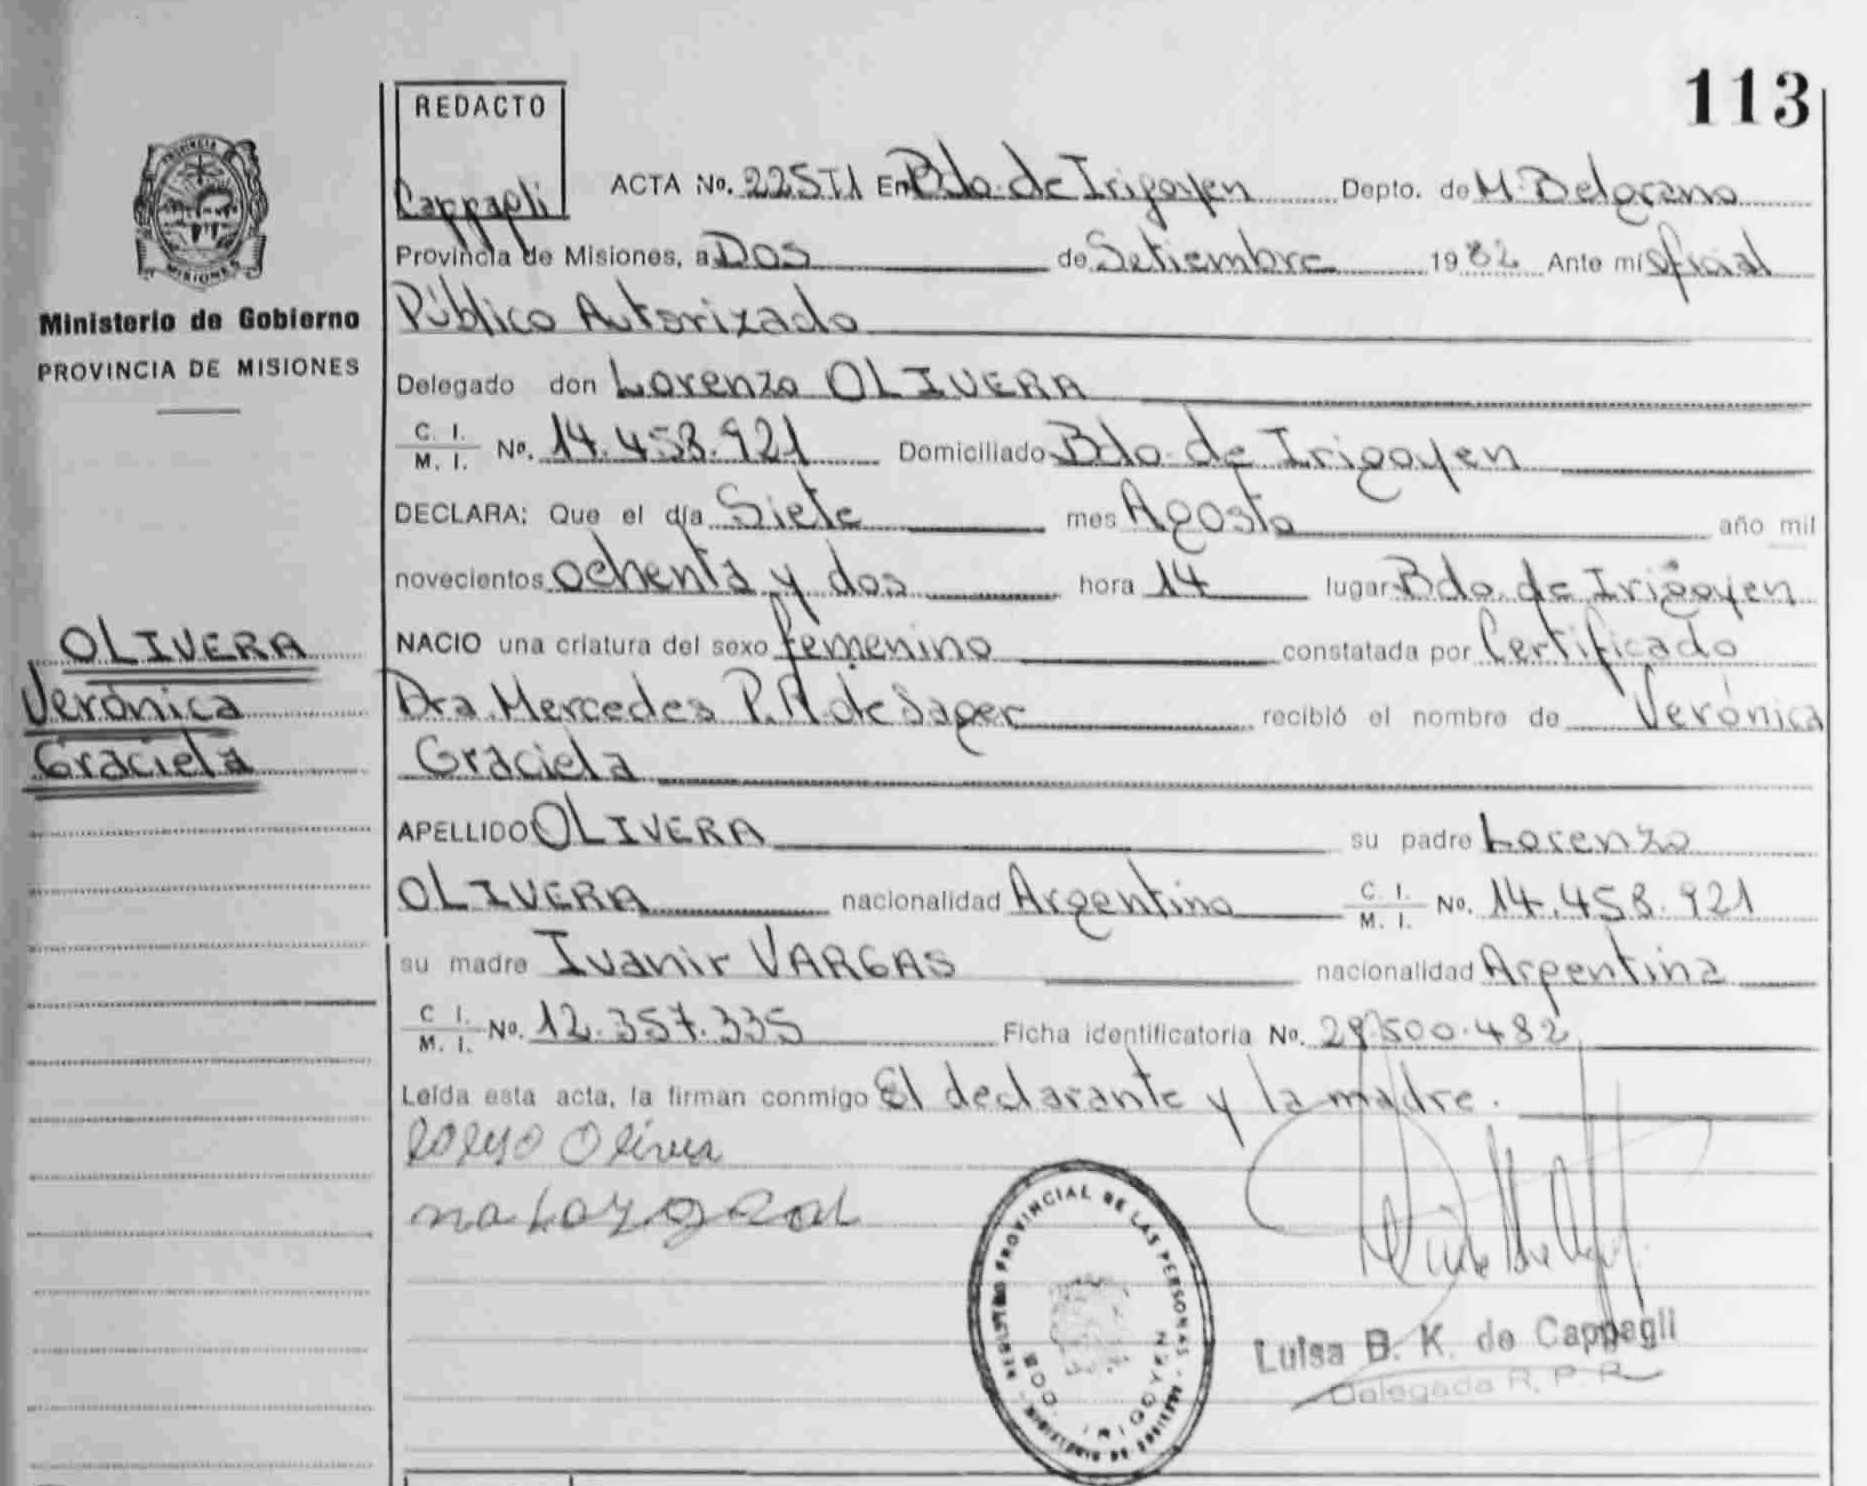 113
REDACTO
Cappagli
ACTA No. 225T1 En Bdo. de Irigoyen Depto. de M. Belgrano
Provincia de Misiones, a Dos de Setiembre 1982 Ante mí Oficial
Público Autorizado
Delegado don Lorenzo OLIVERA
C. I.
M. I. No. 14.458.921 Domiciliado Bdo. de Irigoyen
DECLARA: Que el día Siete mes Agosto año mil
novecientos ochenta y dos hora 14 lugar Bdo. de Irigoyen
NACIO una criatura del sexo femenino constatada por Certificado
Dra. Mercedes P. R. de Sager recibió el nombre de Verónica
Graciela
APELLIDO OLIVERA su padre Lorenzo
OLIVERA nacionalidad Argentino C. I. M. I. No. 14.458.921
su madre Ivanir VARGAS nacionalidad Argentina
C I. M. I. No. 12.357.335 Ficha identificatoria No. 29.500.482
Leída esta acta, la firman conmigo El declarante y la madre.
Olivera
PROVINCIA
MISIONES
Ministerio de Gobierno
PROVINCIA DE MISIONES
OLIVERA
Verónica
Graciela
REGISTRO PROVINCIAL DE LAS PERSONAS
BDO. IRIGOYEN
Luisa B. K. de Cappagli
Delegada R. P. P.